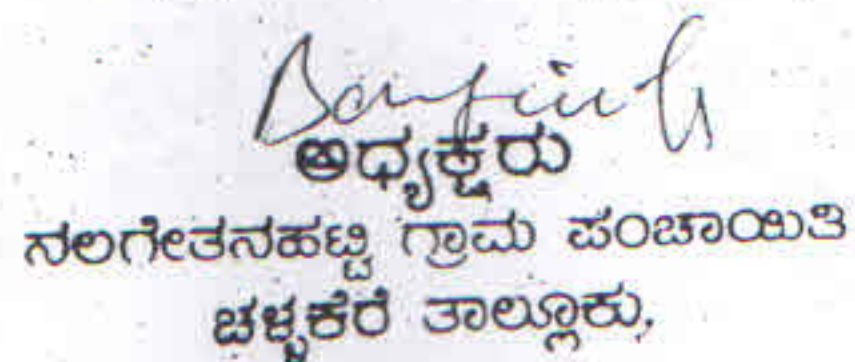 ಅಧ್ಯಕ್ಷರು
ನಲಗೇತನಹಟ್ಟಿ ಗ್ರಾಮ ಪಂಚಾಯಿತಿ
ಚಳ್ಳಕೆರೆ ತಾಲ್ಲೂಕು,